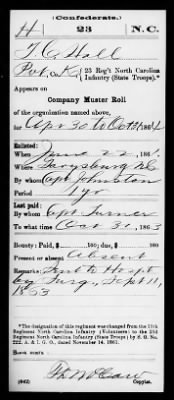 (Confederate.)
H 23 N.C.
T. C. Hall
Pvt, Co. K, 23 Reg't North Carolina
Infantry (State Troops).*
Appears on
Company Muster Roll
of the organization named above,
for Apr 30 to Oct 31, 1864
Enlisted:
When June 22, 186
Where N.C.
By whom Capt Johnston
Period 1 yr
Last paid:
By whom Capt Turner
To what time Oct 31, 1863
Bounty: Paid $ 100; due $ 100
Present or absent Absent
Remarks: Sent to Hospt
by Surg, Sept 11,
1863
*The designation of this regiment was changed from the 13th
Regiment North Carolina Infantry (Volunteers) to the 23d
Regiment North Carolina Infantry (State Troops) by S. O. No.
222, A. & I. G. O., dated November 14, 1861.
Book mark:
(642) Copyist.